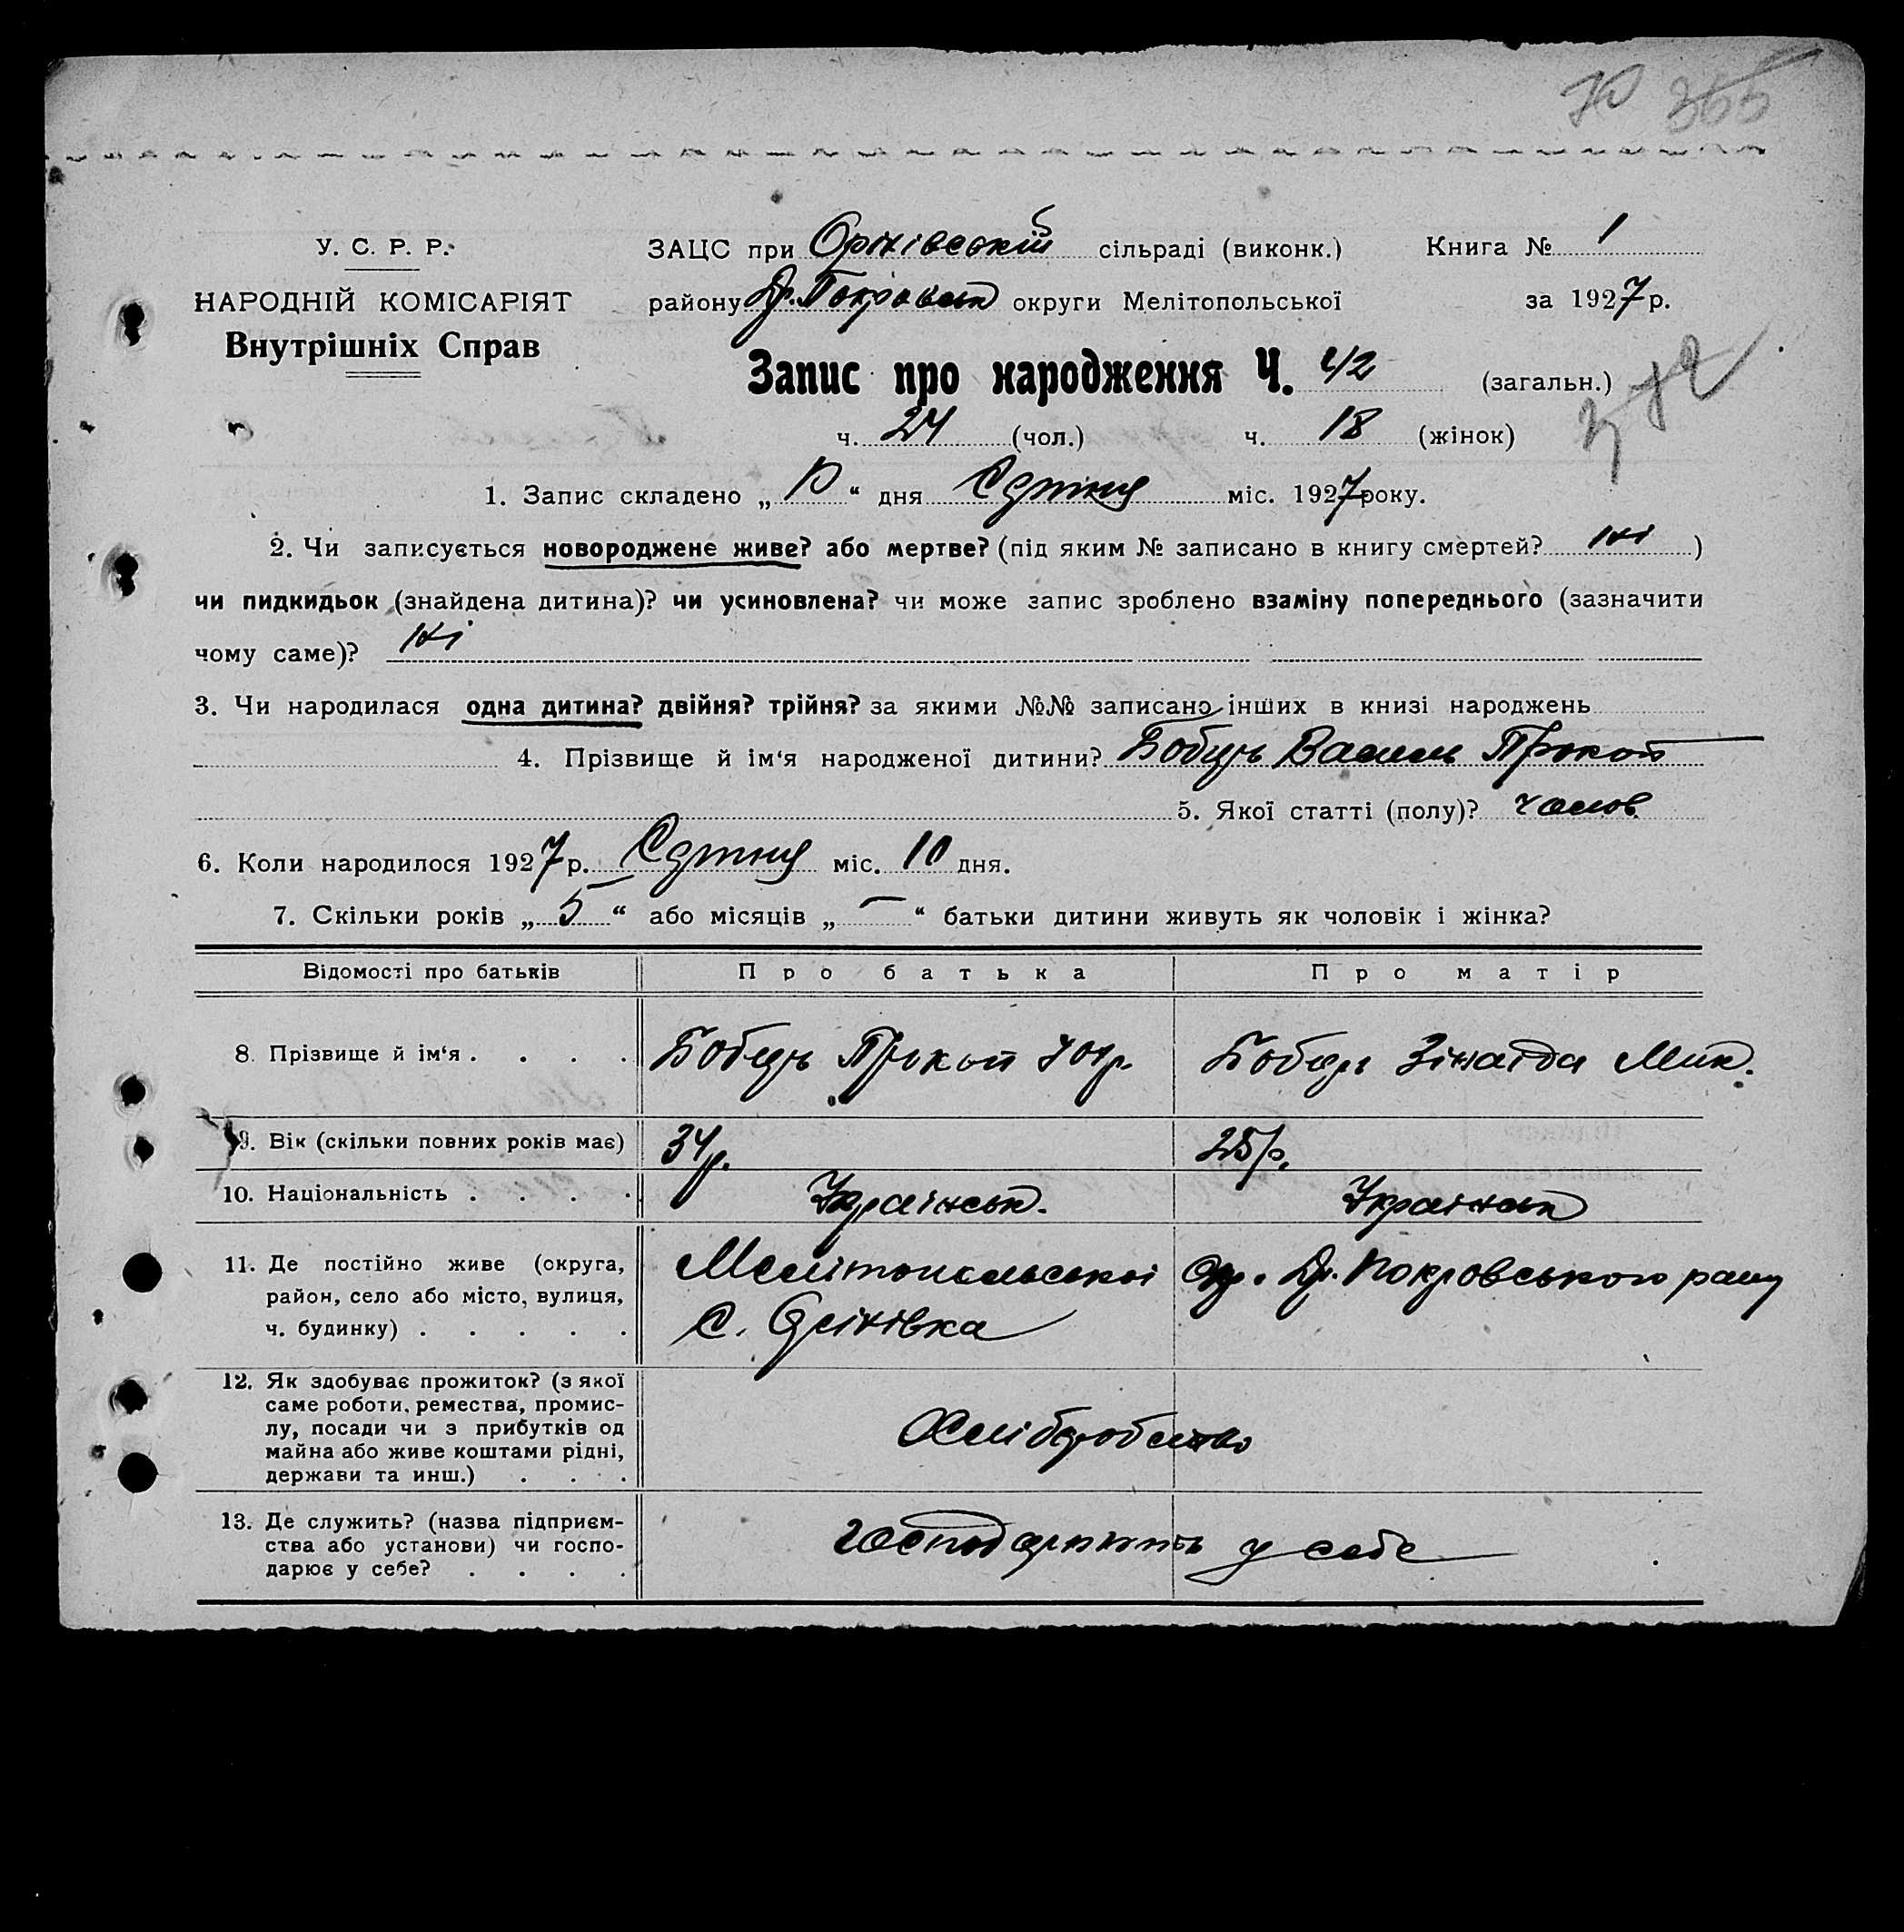 70 355
У. С. Р. Р.
НАРОДНІЙ КОМІСАРІЯТ
Внутрішніх Справ
ЗАЦС при сільраді (виконк.) Книга № 1
району Др. Покровськ округи Мелітопольської за 1927 р.
Запис про народження Ч. 42 (загальн.)
ч. 24 (чол.) ч. 18 (жінок)
1. Запис складено „ “ дня Січня міс. 1927 року.
2. Чи записується новороджене живе? або мертве? (під яким № записано в книгу смертей? ні )
чи пидкидьок (знайдена дитина)? чи усиновлена? чи може запис зроблено взаміну попереднього (зазначити
чому саме)? ні
3. Чи народилася одна дитина? двійня? трійня? за якими №№ записано інших в книзі народжень
4. Прізвище й ім‘я народженої дитини? Василь Прокоп
5. Якої статті (полу)? чолов.
6. Коли народилося 1927 р. Січня міс. 10 дня.
7. Скільки років „ 5 “ або місяців „ — “ батьки дитини живуть як чоловік і жінка?
Відомості про батьків Про батька Про матір
8. Прізвище й ім‘я . . . . Прокоп Зінаїда Мик.
9. Вік (скільки повних років має) 34 р. 25 р.
10. Національність . . . . Українськ. Українськ
11. Де постійно живе (округа,
район, село або місто, вулиця,
ч. будинку) . . . . .
Мелітопольської окр. Др. Покровського рай
с.
12. Як здобуває прожиток? (з якої
саме роботи, ремества, промис-
лу, посади чи з прибутків од
майна або живе коштами рідні,
держави та инш.) . . .
Хліборобство
13. Де служить? (назва підприєм-
ства або установи) чи госпо-
дарює у себе? . . . .
у себе